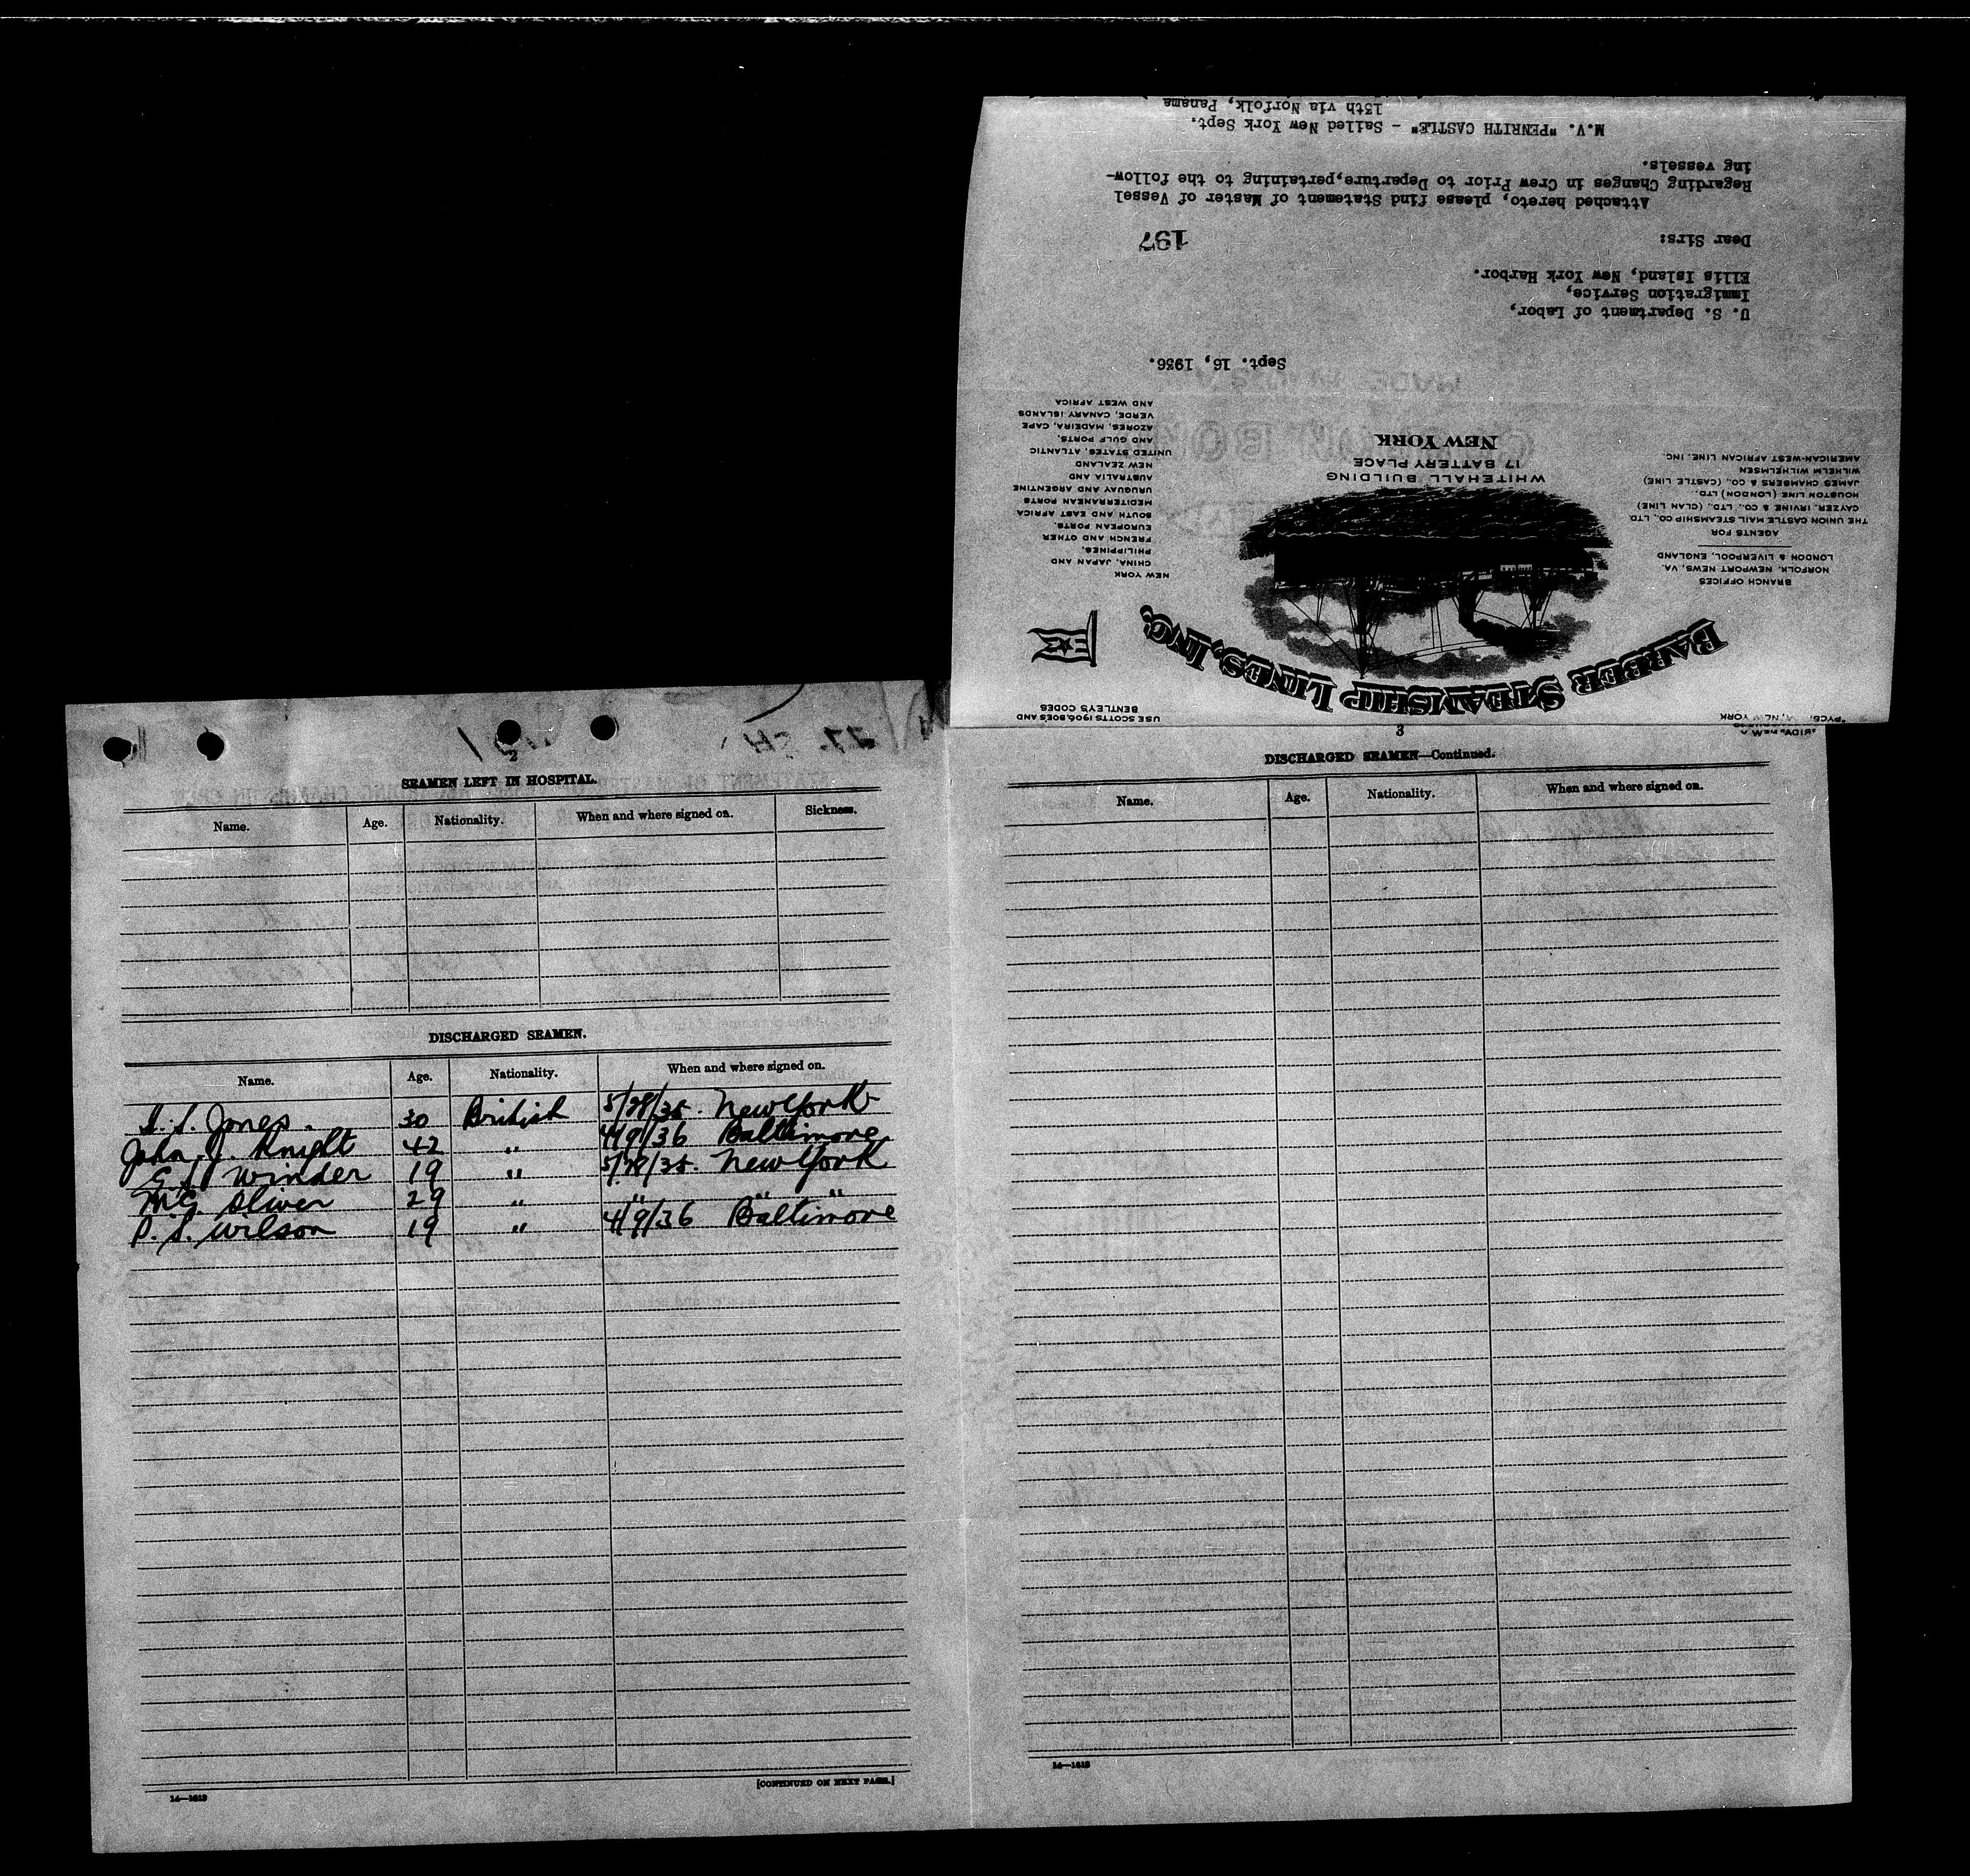 2
SEAMEN LEFT IN HOSPITAL.
Name. Age. Nationality. When and where signed on. Sickness.
DISCHARGED SEAMEN.
Name. Age. Nationality. When and where signed on.
Jones. 30 British New York
John J. Knight 42 " 4/9/36 Baltimore
Winder 19 " New York
29 " " " "
P. S. Wilson 19 " 4/9/36 Baltimore
[CONTINUED ON NEXT PAGE.]
14—1613
3
DISCHARGED SEAMEN—Continued.
Name. Age. Nationality. When and where signed on.
14—1613
USE SCOTTS 1906, BOE'S AND
BENTLEY'S CODES
BARBER STEAMSHIP LINES, INC.
BRANCH OFFICES
NORFOLK, NEWPORT NEWS, VA.
LONDON & LIVERPOOL, ENGLAND
AGENTS FOR
THE UNION CASTLE MAIL STEAMSHIP CO., LTD.
CAYZER, IRVINE & CO., LTD., (CLAN LINE)
HOUSTON LINE (LONDON) LTD.
JAMES CHAMBERS & CO., (CASTLE LINE)
WILHELM WILHELMSEN
AMERICAN-WEST AFRICAN LINE, INC.
WHITEHALL BUILDING
17 BATTERY PLACE
NEW YORK
NEW YORK
CHINA, JAPAN AND
PHILIPPINES,
FRENCH AND OTHER
EUROPEAN PORTS,
SOUTH AND EAST AFRICA
MEDITERRANEAN PORTS
URUGUAY AND ARGENTINE
AUSTRALIA AND
NEW ZEALAND
UNITED STATES, ATLANTIC
AND GULF PORTS,
AZORES, MADEIRA, CAPE
VERDE, CANARY ISLANDS
AND WEST AFRICA
Sept. 16, 1936.
U. S. Department of Labor,
Immigration Service,
Ellis Island, New York Harbor.
Dear Sirs:
197
Attached hereto, please find Statement of Master of Vessel
Regarding Changes in Crew Prior to Departure,pertaining to the follow-
ing vessels.
M.V. "PENRITH CASTLE" - Sailed New York Sept.
13th via Norfolk, Panama